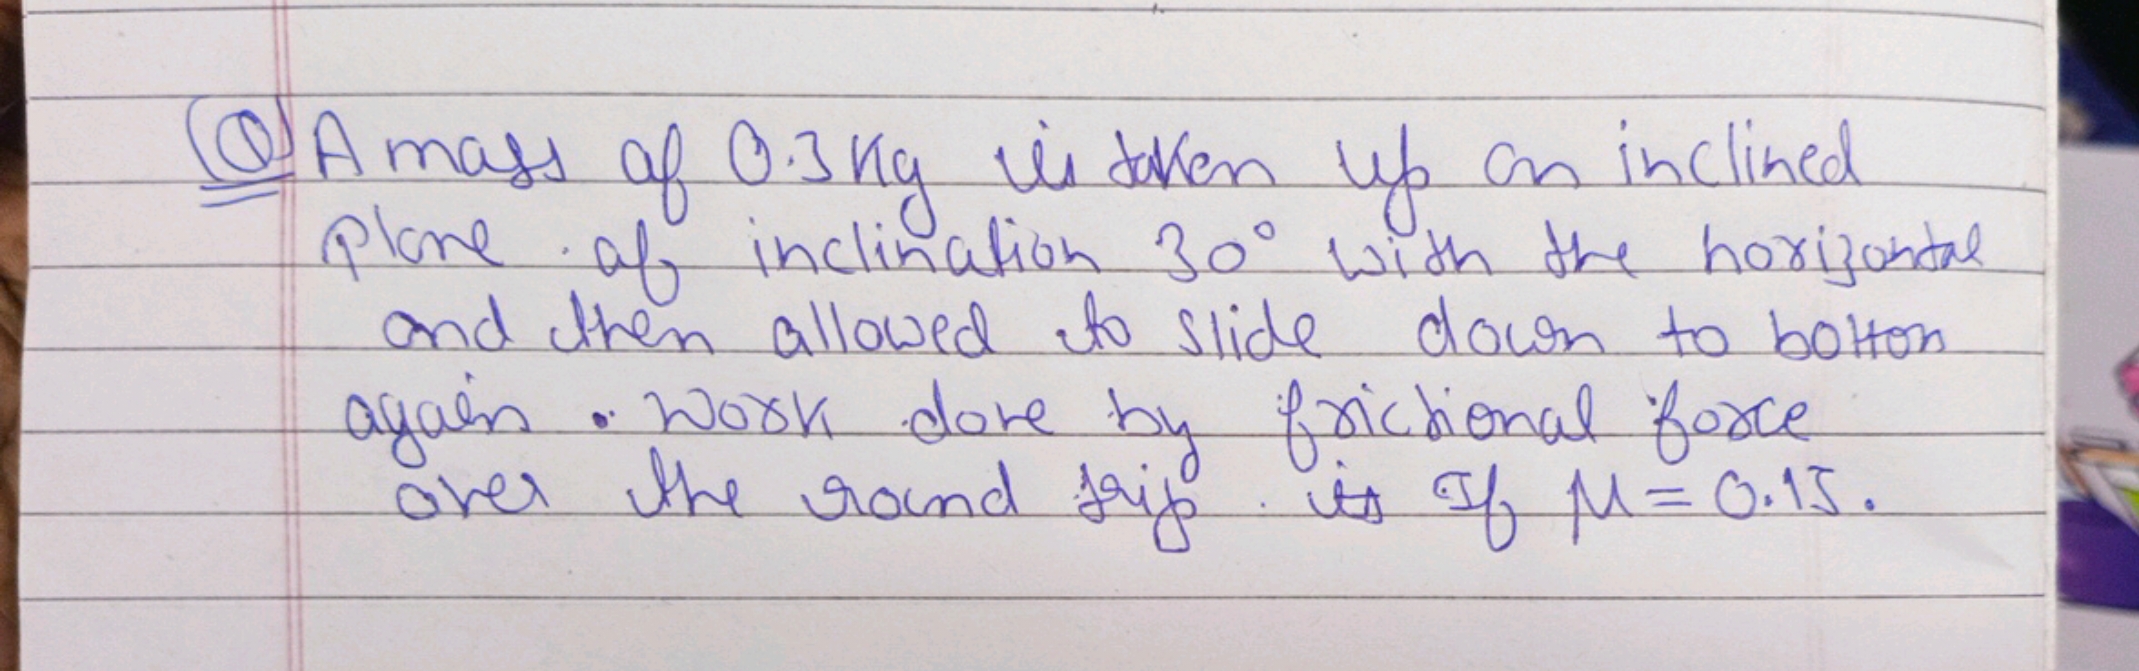 Q A mass of 0.3 Kg is taken up an inclined
plane of inclination 30° with the horizontal
and then allowed to slide down to botton
again. Work done by frictional force
over the round trip. is If μ = 0.15.